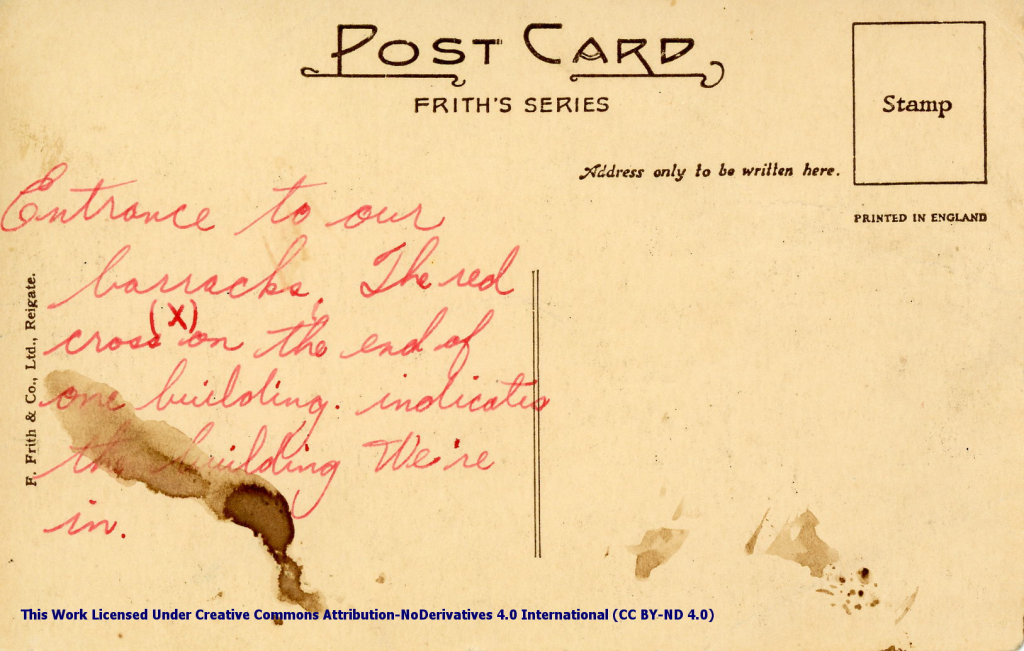 POST CARD
FRITH'S SERIES
Stamp
Address only to be written here.
PRINTED IN ENGLAND
F. Frith & Co., Ltd., Reigate.
Entrance to our
barracks. The red
(X)
cross on the end of
one building. indicates
the building We're
in.
This Work Licensed Under Creative Commons Attribution-NoDerivatives 4.0 International (CC BY-ND 4.0)